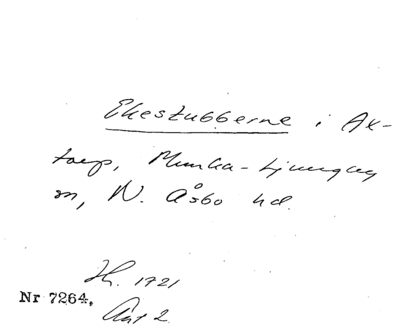 Ekestubberne i Ax-
torp, Munka-Ljungby
sn, N. Åsbo hd.
Jb. 1721
Nr 7264.
Ant 2